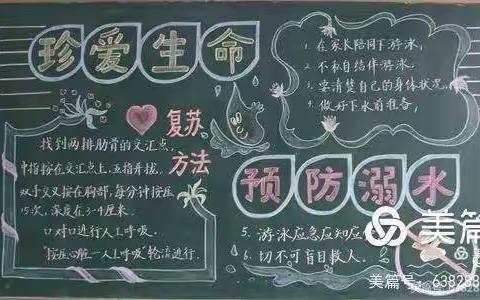 珍爱生命
1. 在家长陪同下游泳,
2. 不私自结伴游泳,
3. 要清楚自己的身体状况,
4. 做好下水前准备,
复苏
方法
找到两排肋骨的交汇点,
中指按在交汇点上,五指并拢,
双手交叉按在胸部,每分钟按压
15次,深度在3-4厘米.
口对口进行人工呼吸.
"按压心脏-人工呼吸"轮流进行.
预防溺水
5. 游泳应急应知应
6. 切不可盲目救人.
美篇
美篇号: